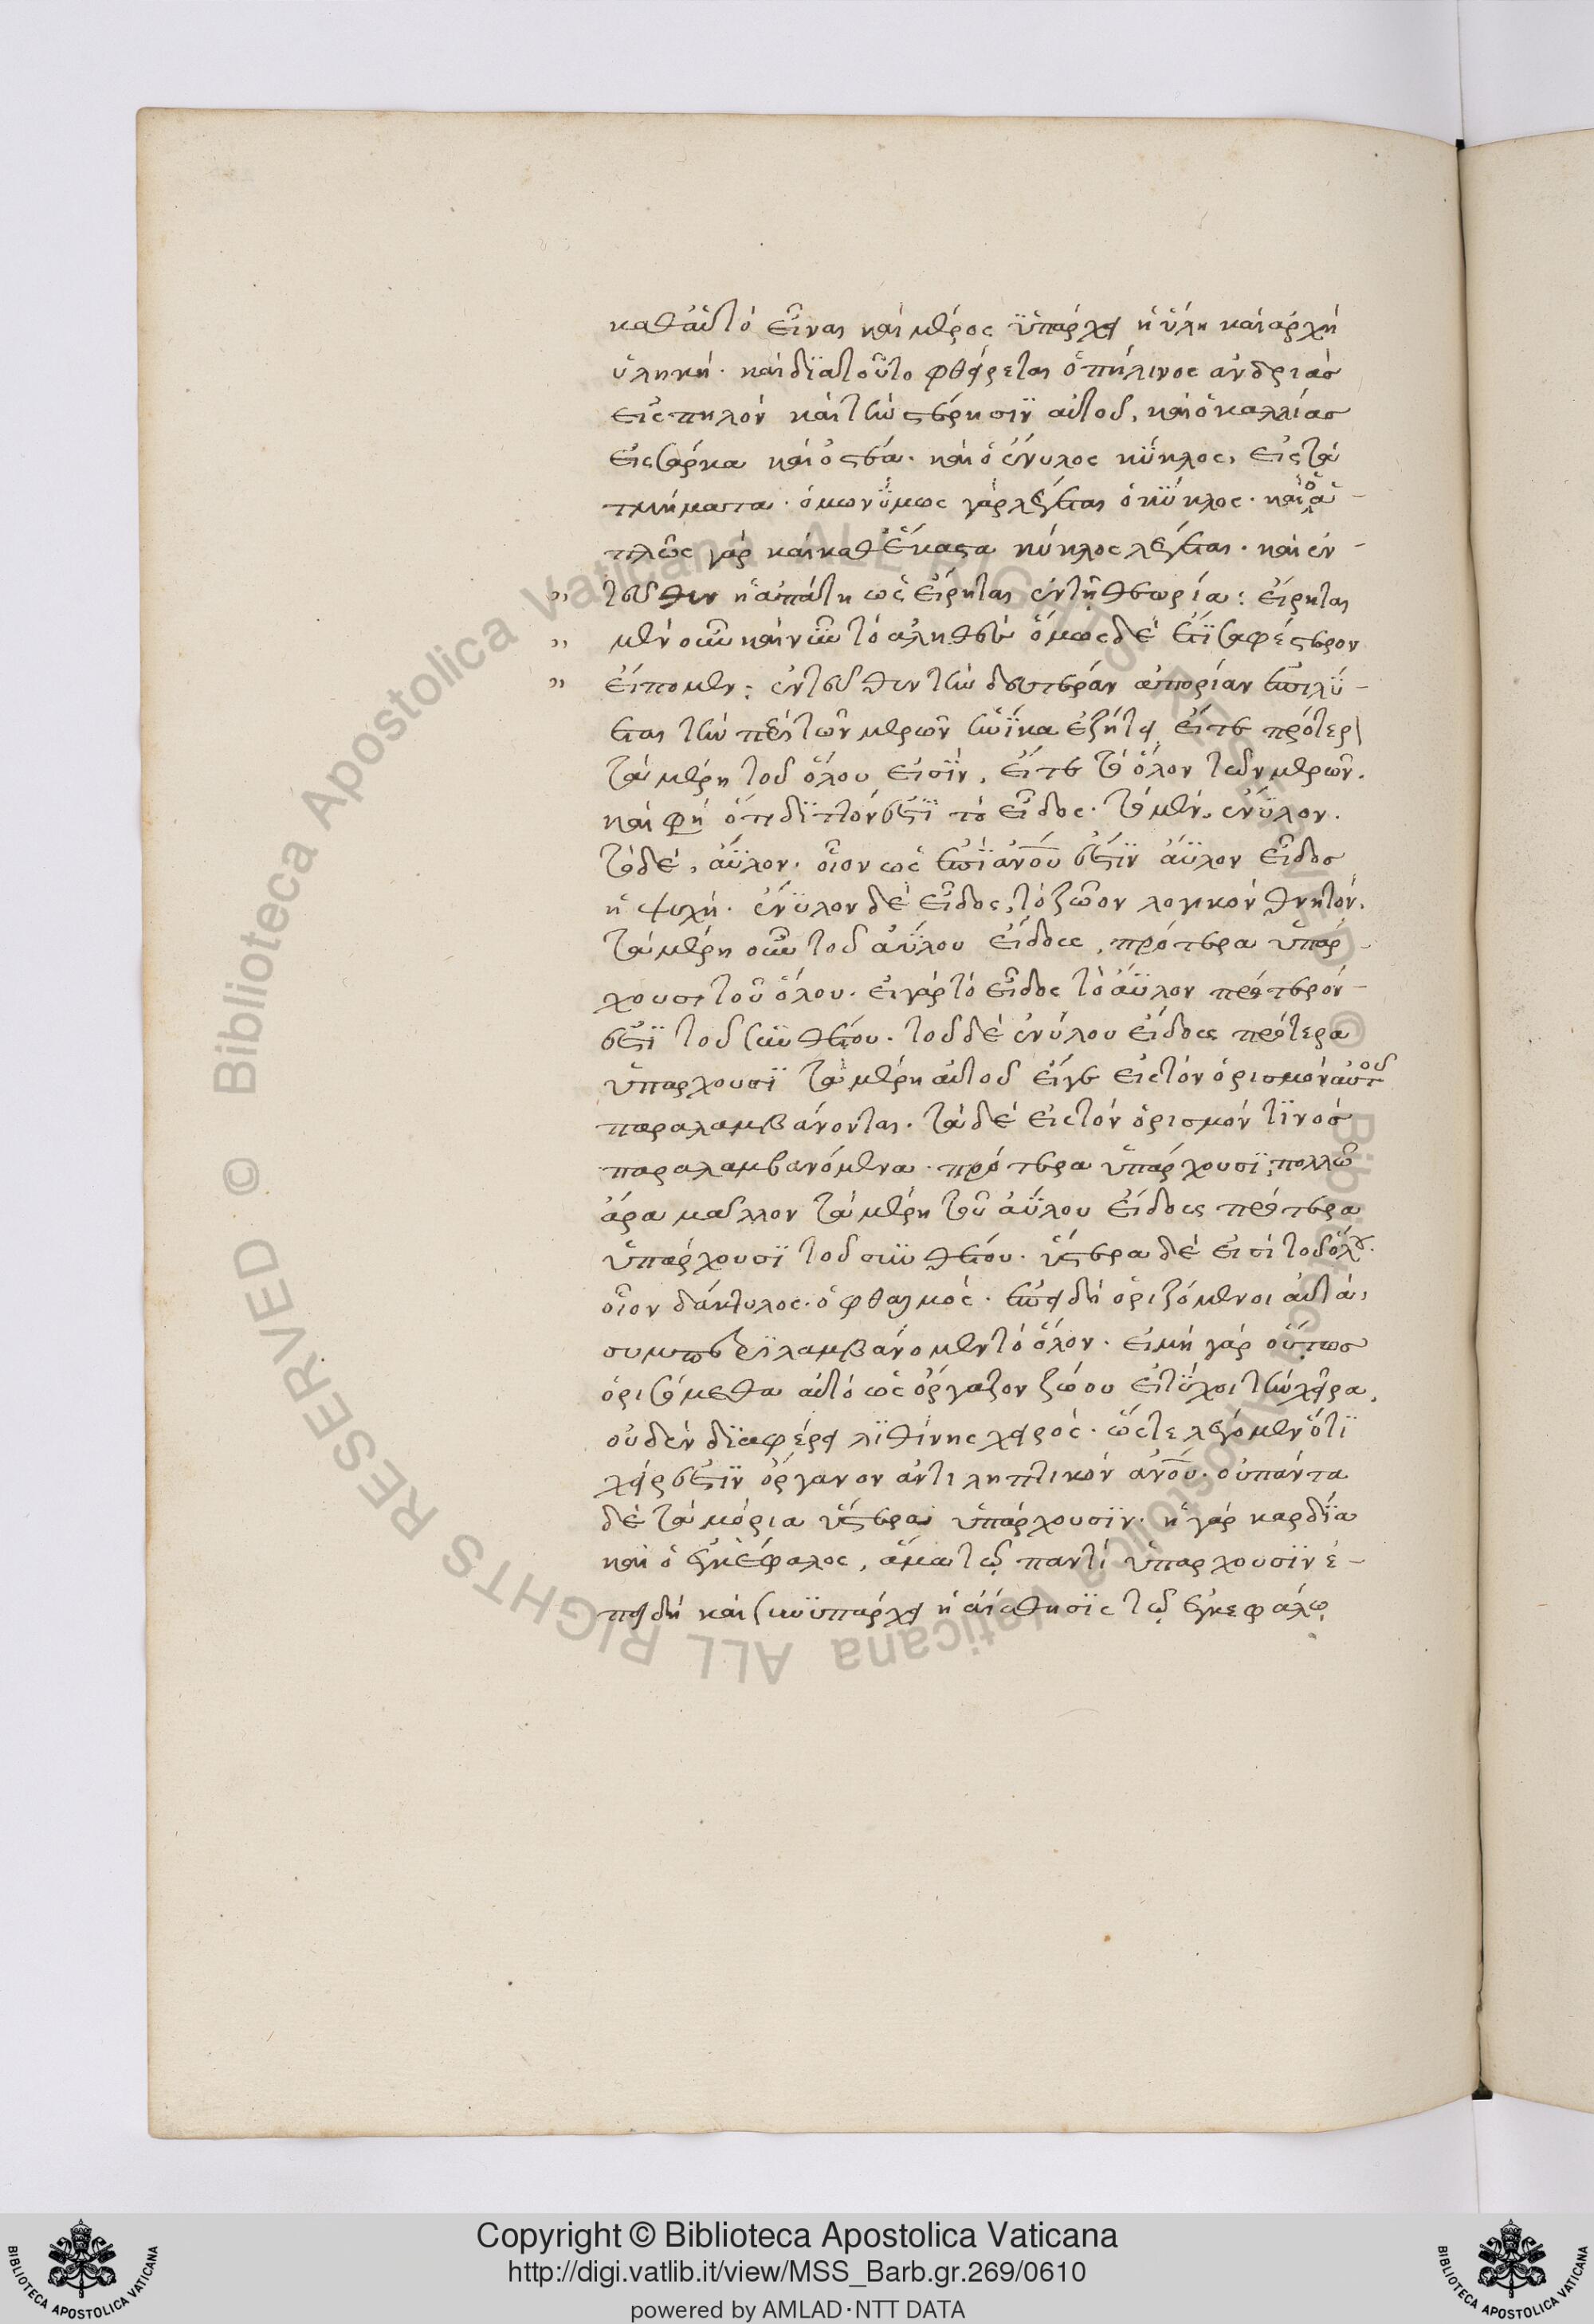 καθ' αὑτό εἶναι καὶ μέρος ὑπάρχει ἡ ὕλη καὶ ἀρχὴ
ὑληκή. καὶ διατοῦτο φθείρεται ὁ πήλινος ἀνδριὰς
εἰς πηλὸν καὶ τὴν στέρησιν αὐτοῦ, καὶ ὁ καλλίας
εἰς σάρκα καὶ ὀστέα. καὶ ὁ ἔνυλος κύκλος, εἰς τὰ
τμήματα. ὁμωνύμως γὰρ λέγεται ὁ κύκλος. καὶ ὁ ἁ-
πλῶς γὰρ καὶ καθ' ἕκαστα κύκλος λέγεται. καὶ ἐν-
" τεῦθεν ἡ ἀπάτη ὡς εἴρηται ἐν τῇ θεωρία: εἴρηται
" μὲν οὖν καὶ νῦν τὸ ἀληθὲς ὅμως δὲ ἔτι σαφέστερον
" εἴπομεν: ἐντεῦθεν τὴν δευτέραν ἀπορίαν ἐπιλύ-
εται τὴν περὶ τῶν μερῶν ἡνίκα ἐζήτει εἴτε πρότερ
τὰ μέρη τοῦ ὅλου εἰσὶν, εἴτε τὸ ὅλον τῶν μερῶν.
καὶ φησὶ ὅτι διττόν ἐστὶ τὸ εἶδος. τὸ μὲν, ἐνύλον.
τὸ δὲ, ἄϋλον. οἷον ὡς ἐπὶ ἀνου ἐστὶν ἄϋλον εἶδος
ἡ ψυχή. ἐνυλον δὲ εἶδος, τὸ ζῶον λογικὸν θνητόν.
τὰ μέρη οὖν τοῦ ἀΰλου εἴδους, πρότερα ὑπάρ-
χουσι τοῦ ὅλου. εἰ γὰρ τὸ εἶδος τὸ ἄϋλον πρότερόν-
ἐστὶ τοῦ συνθέτου. τοῦ δὲ ἐνύλου εἴδους πρότερα
ὑπαρχουσι τὰ μέρη αὐτοῦ εἴγε εἰς τὸν ὁρισμὸν αὐτοῦ
παραλαμβάνονται. τὰ δὲ εἰς τὸν ὁρισμόν τινος
παραλαμβανόμενα. πρότερα ὑπάρχουσι, πολλῶ
ἄρα μᾶλλον τὰ μέρη τοῦ ἀΰλου εἴδους πρότερα
ὑπάρχουσι τοῦ συνθέτου. ὕστερα δὲ εἰσὶ τοῦ ὅλου.
οἷον δάκτυλος. ὀφθαλμός. ἐπεὶ δὴ ὁριζόμενοι αὐτὰ,
συμπεριλαμβάνομεν τὸ ὅλον. εἰ μὴ γὰρ οὕτως
ὁρισόμεθα αὐτὸ ὡς ὄργανον ζώου εἰ τύχοι τὴν χεῖρα,
οὐδὲν διαφέρει λιθίνης χειρός. ὥστε λέγομεν ὅτι
χείρ ἐστὶν ὄργανον ἀντιληπτικόν ἀνου. οὐ πάντα
δὲ τὰ μόρια ὕστερα ὑπάρχουσιν. ἡ γὰρ καρδία
καὶ ὁ ἐγκέφαλος, ἅμα τῷ παντὶ ὑπαρχουσιν ἐ-
πειδὴ καὶ συνυπάρχει ἡ αἴσθησις τῷ ἐγκεφάλῳ
Copyright © Biblioteca Apostolica Vaticana
http://digi.vatlib.it/view/MSS_Barb.gr.269/0610
powered by AMLAD·NTT DATA